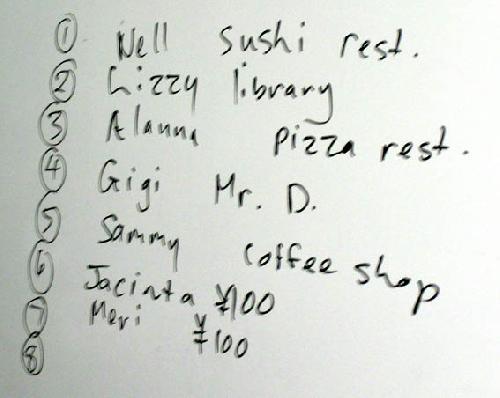 ① Nell sushi rest.
② Lizzy library
③ Alanna pizza rest.
④ Gigi Mr. D.
⑤ Sammy coffee shop
⑥ Jacinta ¥100
⑦ Meri ¥100
⑧